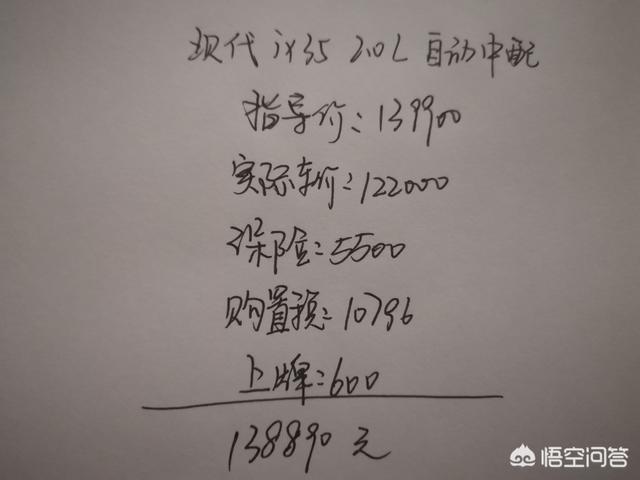 现代ix35 2.0L 自动中配
指导价:139900
实际车价:122000
保险:5500
购置税:10796
上牌:600
138890元
悟空问答